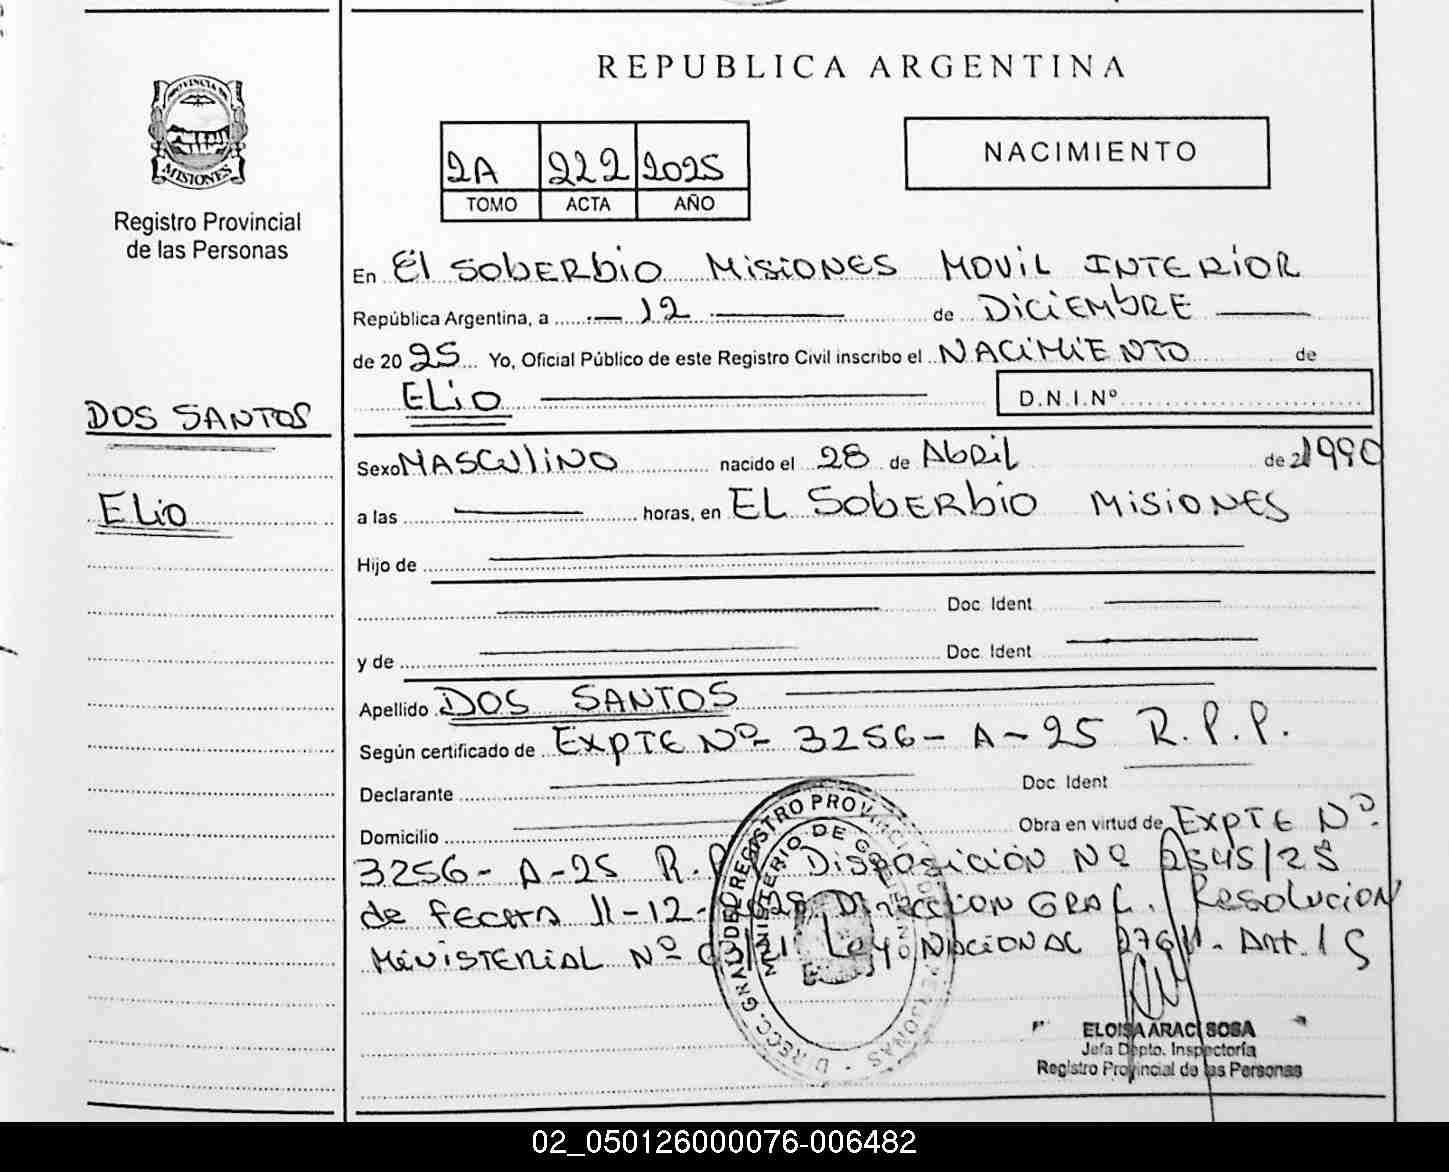 PROVINCIA DE
MISIONES
Registro Provincial
de las Personas
DOS SANTOS
ELiO
REPUBLICA ARGENTINA
2A 222 2025
TOMO ACTA AÑO
NACIMIENTO
En El SObERbiO MiSiONES MOViL INTERiOR
República Argentina, a 12 de DiCiEMbRE
de 2025 Yo, Oficial Público de este Registro Civil inscribo el NACiMiENTO de
ELiO D.N.I.Nº
Sexo MASCULiNO nacido el 28 de AbRiL de 1990
a las horas, en EL SObERbiO MiSiONES
Hijo de
Doc. Ident
y de Doc. Ident
Apellido DOS SANTOS
Según certificado de EXPTE Nº 3256-A-25 R.P.P.
Declarante Doc. Ident
Domicilio Obra en virtud de EXPTE Nº
3256-A-25 R.P. DiSPOSiCiÓN Nº 2545/25
de FECHA 11-12- DiRECCiON GRAL. RESOLUCiON
MiNiSTERiAL Nº Ley NACiONAL Art. 15
DIRECC. GRAL. DEL REGISTRO PROVINCIAL DE PERSONAS
MINISTERIO DE GOBIERNO
ELOISA ARACI SOSA
Jefa Dpto. Inspectoría
Registro Provincial de las Personas
02_050126000076-006482